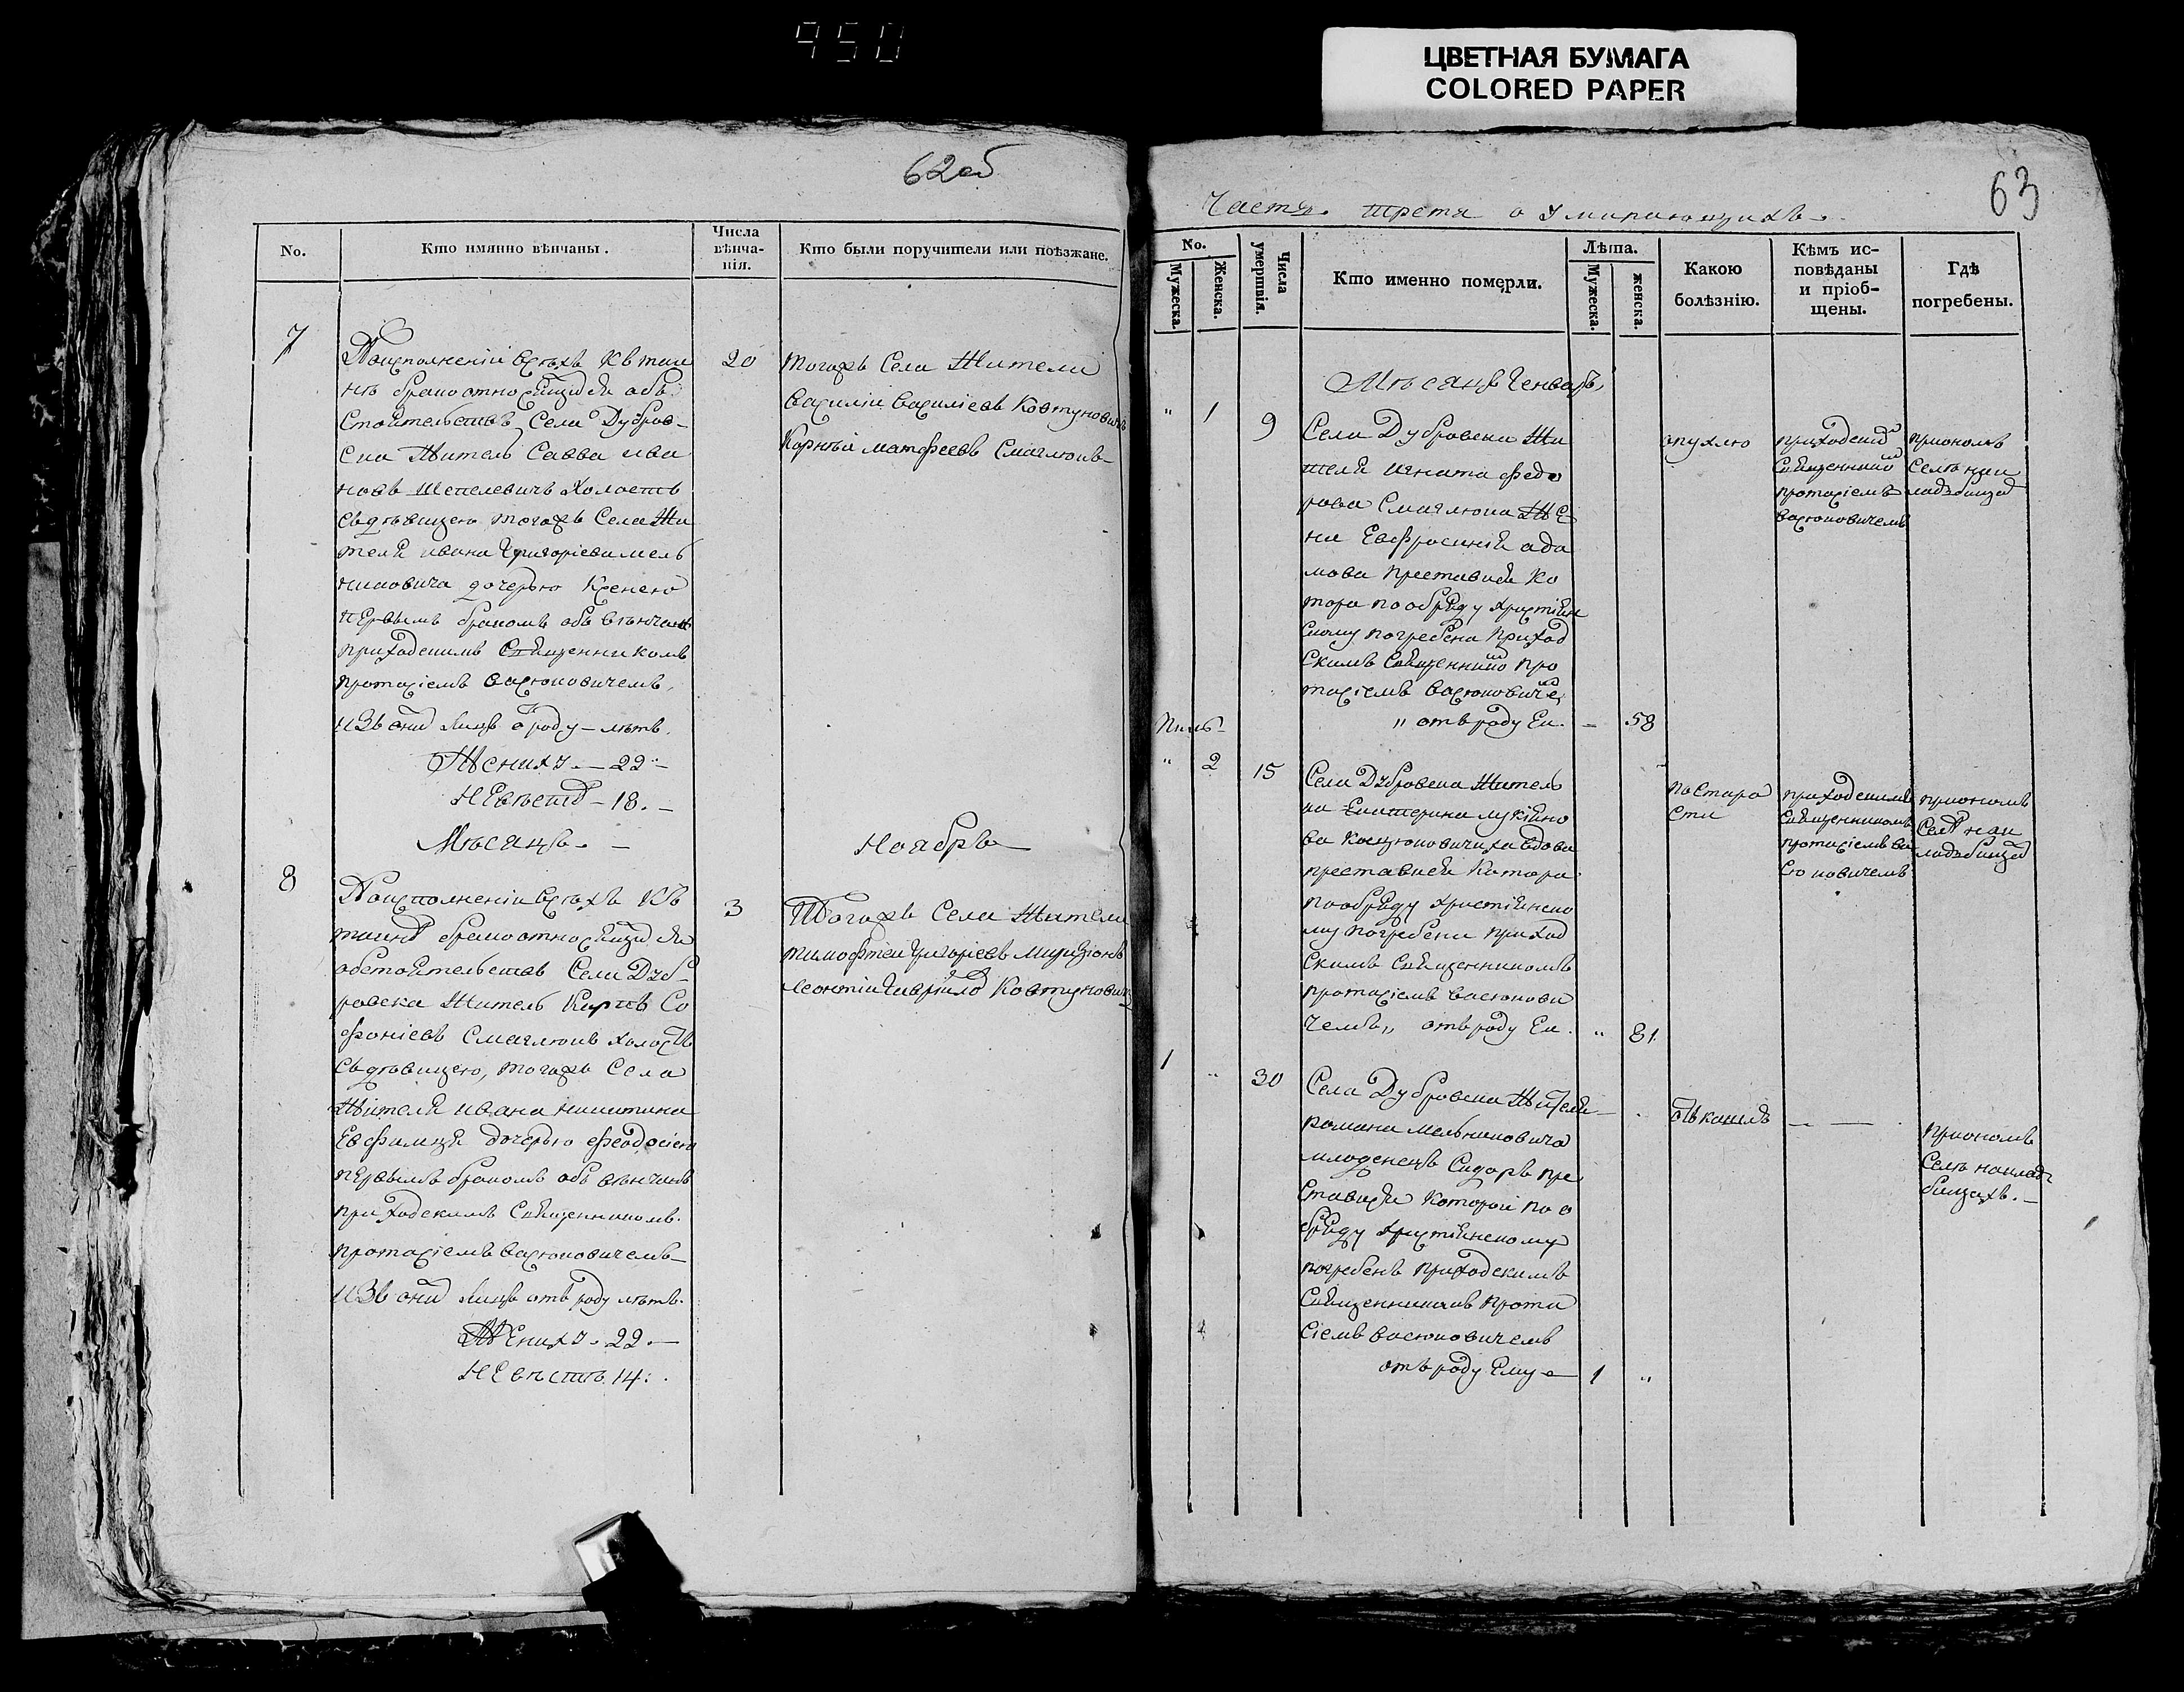 950
ЦВЕТНАЯ БУМАГА
COLORED PAPER
62об
No.
Кто имянно вѣнчаны.
Числа вѣнча-нія.
Кто были поручители или поѣзжане.
7
Поисполненіи всѣхъ къ таи
нѣ брака относящихся объ
стоятельствъ Села Дубров
ска Житель Савва ива
новъ Шепелевичъ холостъ
съдѣвицею тогожъ Села Жи
теля ивана Григоріева мель
никовича дочерью Ксенею
первымъ бракомъ обвѣнчанъ
приходскимъ Священникомъ
протасіемъ васюковичемъ,
изъ оних лицъ от роду лѣтъ.
Жениху. — 22 —
Невѣстѣ — 18. —
20
тогожъ Села Жители
василій василіевъ Ковтуновичъ
Корнѣй матфеевъ Смаглюкъ
Мѣсяцъ. —
Ноябрь
8
Поисполненіи всѣхъ къ
таинѣ брака относящихся
обстоятельствъ Села Дуб
ровска Житель Карпъ Со
фоніевъ Смаглюкъ холостъ
съдѣвицею, тогожъ Села
Жителя ивана никитина
Евфимця дочерью феодосіею
первымъ бракомъ обвѣнчанъ
приходскимъ Священникомъ.
протасіемъ васюковичемъ
изъ оних лицъ отъ роду лѣтъ.
Жениху. 22. —
Невѣстѣ 14.
3
Тогожъ Села Жители
тимофтей григоріевъ
леонтій гаврілов Ковтунович
63
Часть. третя о умирающихъ.
No.
Мужеска.
Женска.
Числа умертвія.
Кто именно померли.
Лѣта.
Мужеска.
женска.
Какою болѣзнію.
Кѣмъ ис-
повѣданы
и пріоб-
щены.
Гдѣ
погребены.
Мѣсяцъ Генваръ,
" 1 9
Села Дубровска Жи
теля игната федо
рова Смаглюка Же
на Евфросинія ада
мова преставися Ко
тора пообряду христіян
скому погребена приход
скимъ Священнико про
тасіемъ васюкович
" отъ роду Ей. — 58
опухлю
приходски
Священнико
протасіемъ
васюковичемъ
приономъ
Селѣ нак
ладбищах
" 2 15
Села Дубровска Житель
ка Екатерина лукіяно
ва вдова
преставися Котора
пообряду христіянско
му погребена приход
скимъ Священникомъ
протасіемъ васюкови
чемъ,, отъ роду Ей. " 81
постаро
сти
приходскимъ
Священникомъ
протасіемъ ва
сюковичемъ
приономъ
Селѣ нак
ладбищах
1 " 30
Села Дубровска Жителя
романа мельниковича
младенецъ Сидоръ пре
ставися Которій по о
бряду христіянскому
погребенъ приходскимъ
Священникомъ прота
сіемъ васюковичемъ
отъ роду Ему — 1 "
отъ кашля
— —
приономъ
Селѣ наклад
бищахъ. —